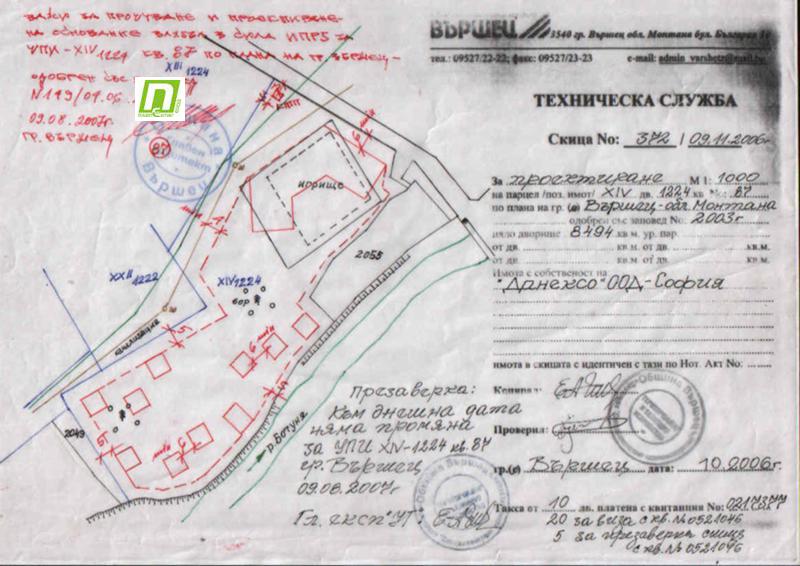 ВИЗА ЗА ПРОУЧВАНЕ И ПРОЕКТИРАНЕ
НА ОСНОВАНИЕ ВЛЯЗЪЛ В СИЛА ИПРЗ ЗА
УПИ-XIV 1224 КВ. 87 ПО ПЛАНА НА ГР. ВЪРШЕЦ-
ОДОБРЕН СЪС
N119/01.06.
09.08.2007г.
ГР. ВЪРШЕЦ
87
XIII 1224
XXII 1222
XIV 1224
игрище
2055
бор
канализация
2049
р. Ботуня
6 min
5
ВЪРШЕЦ
3540 гр. Вършец обл. Монтана бул. България
тел.: 09527/22-22; факс: 09527/23-23
e-mail: admin_varshetz@mail.bg
ТЕХНИЧЕСКА СЛУЖБА
Скица No: 372 / 09.11.2006г.
За проектиране М 1: 1000
на парцел /поз. имот/ XIV дв. 1224 кв. No: 87
по плана на гр. (с) Вършец-обл. Монтана
одобрен със заповед No: 2003г
цяло дворище 8494 кв.м. ур. пар.
от дв. кв.м. от дв. кв.м.
от дв. кв.м. от дв. кв.м.
Имота с собственост на
"Данексо" ООД-София
имота в скицата с идентичен с тази по Нот. Акт No:
Копирал:
Проверил:
гр.(с) Вършец дата: 10.2006г.
Такса от 10 лв. платена с квитанция No:
20 за виза с кв. № 0521046
5 за презаверка скица
с кв. № 0521046
Презаверка:
Към днешна дата
няма промяна
за УПИ XIV-1224 кв. 87
гр. Вършец
09.08.2007г
Гл. експ. УТ: